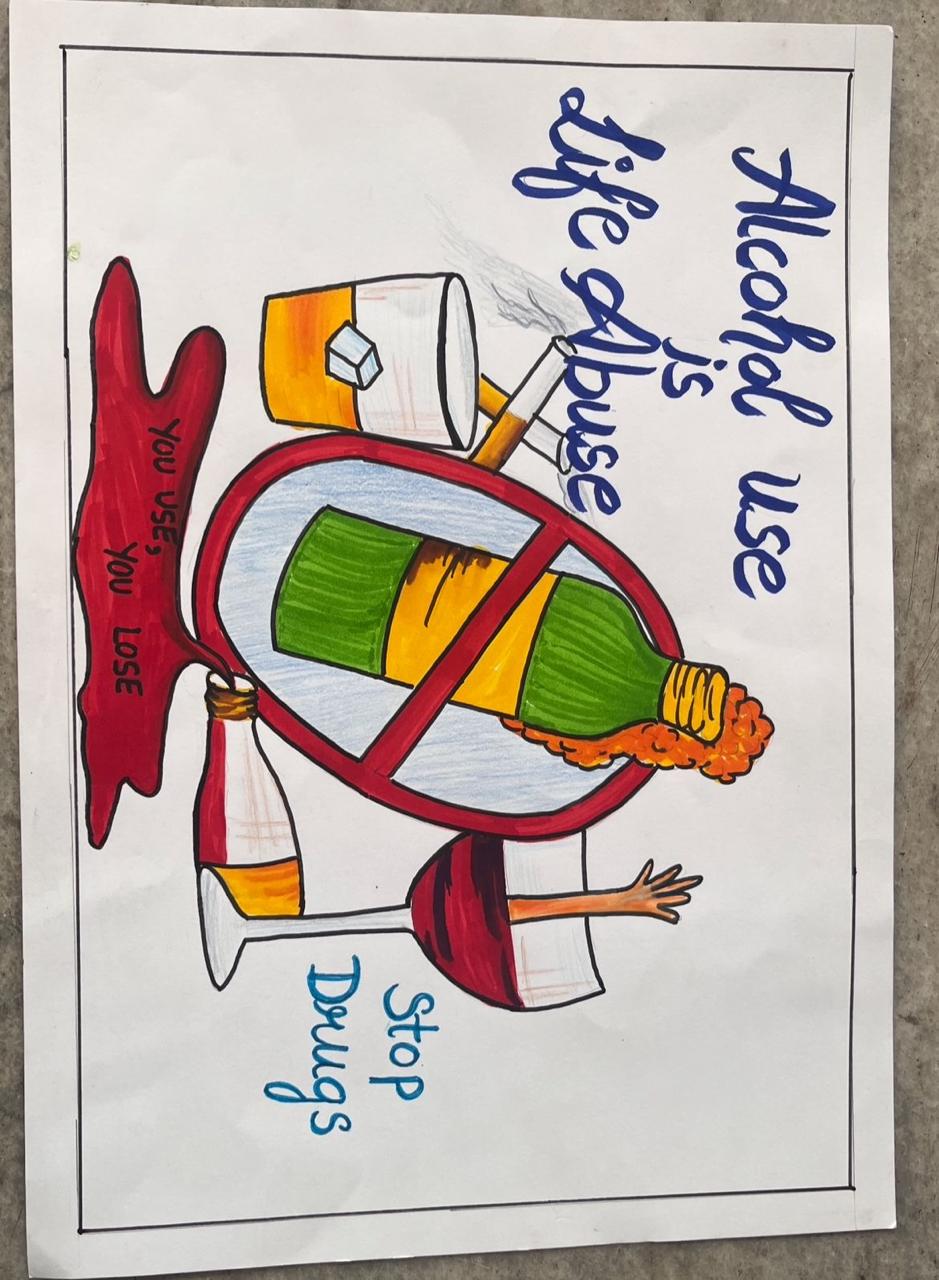 Alcohol use
is
Life Abuse
Stop
Drugs
YOU USE,
YOU LOSE